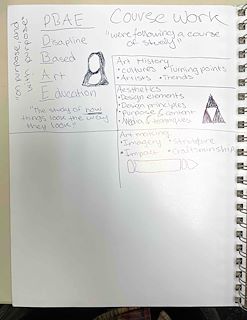 "on purpose, and
with purpose"
DBAE
Discipline
Based
Art
Education
"The study of how
things look the way
they look"
Course Work
"were following a course
of study"
Art History
• cultures • Turning points
• Artists • Trends
Aesthetics
• Design elements
• Design principles
• Purpose & content
• Media & techniques
Art making
• Imagery • Structure
• Impact • Craftsmanship